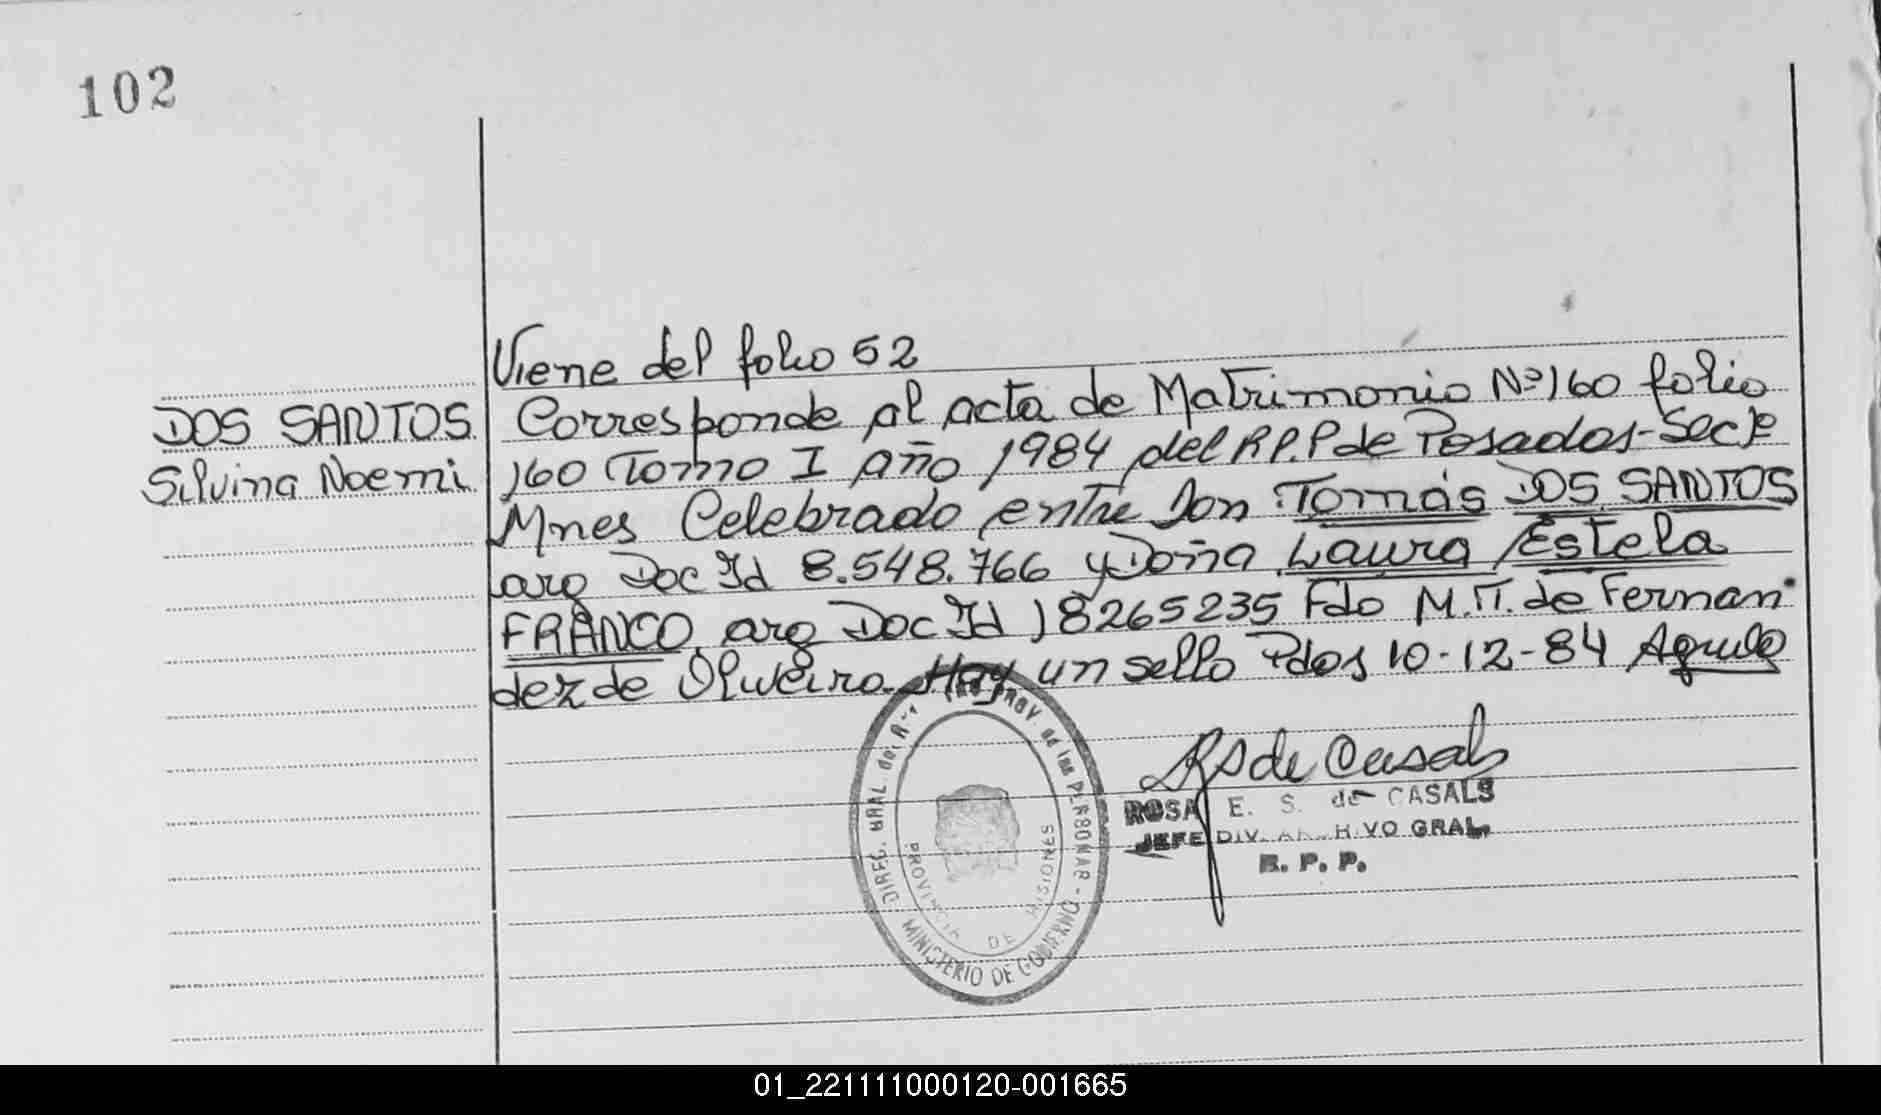 102
Viene del folio 52
DOS SANTOS
Silvina Noemi
Corresponde al acta de Matrimonio Nº 160 folio
160 Tomo I año 1984 del R.P.P de Posadas-Secc
Mnes Celebrado entre Don Tomás DOS SANTOS
arg Doc Id 8.548.766 y Doña Laura Estela
FRANCO, arg Doc Id 18265235 Fdo M.T. de Fernan
dez de Oliveira. Hay un sello Pdos 10-12-84
DIREC. GRAL. del PROV. de las PERSONAS - MINISTERIO DE GOBIERNO
PROVINCIA DE MISIONES
RS de Casals
ROSA E. S. de CASALS
JEFE DIV. ARCHIVO GRAL.
R. P. P.
01_221111000120-001665